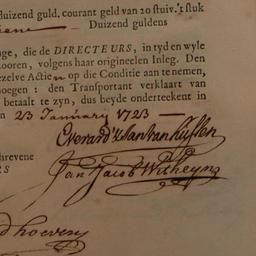 duizend guld. courant geld van 20 stuiv.'t stuk
Duizend guldens
nge, die de DIRECTEURS, in tyd en wyle
ooren, volgens haar origineelen Inleg. Den
ezelve Actien op die Conditie aan te nemen,
noegen : den Transportant verklaart van
betaalt te zyn, dus beyde onderteekent in
n 23 January 1723
Everard
Jan Jacob
chrevene
RS
dhoeven